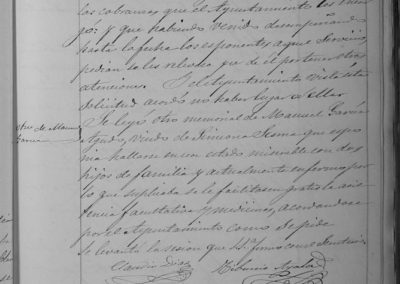 las cobranzas que el Ayuntamiento les
y que habiendo venido desempeñando
hasta la fecha los esponentes aquel servicio
pedian se les
atenciones. I el Ayuntamiento vista esta
solicitud acordó no haber lugar a ella
Otro de Manuel
Garcia
Se leyó otro memorial de Manuel Garcia
Agudo, viudo de que espo
nia hallarse en un estado miserable con dos
hijos de familia y actualmente enfermo por
lo que suplicaba se le facilitase gratis la asis
tencia facultativa y medicinas, acordandose
por el Ayuntamiento como se pide
Se levantó la sesion que firma con el
Claudio Diaz
Tiburcio Ayala